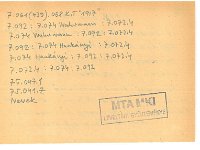 7.061(439).068 K.T "1917"
7.092 : 7.074 Vedermann : 7.072.4
7.074 Vedermann : 7.092 : 7.072.4
7.092 : 7.074 Harkányi : 7.072.4
7.074 Harkányi : 7.092 : 7.072.4
7.072.4 : 7.074 : 7.092
75.047.1
75.041.7
Nevek
MTA MKI